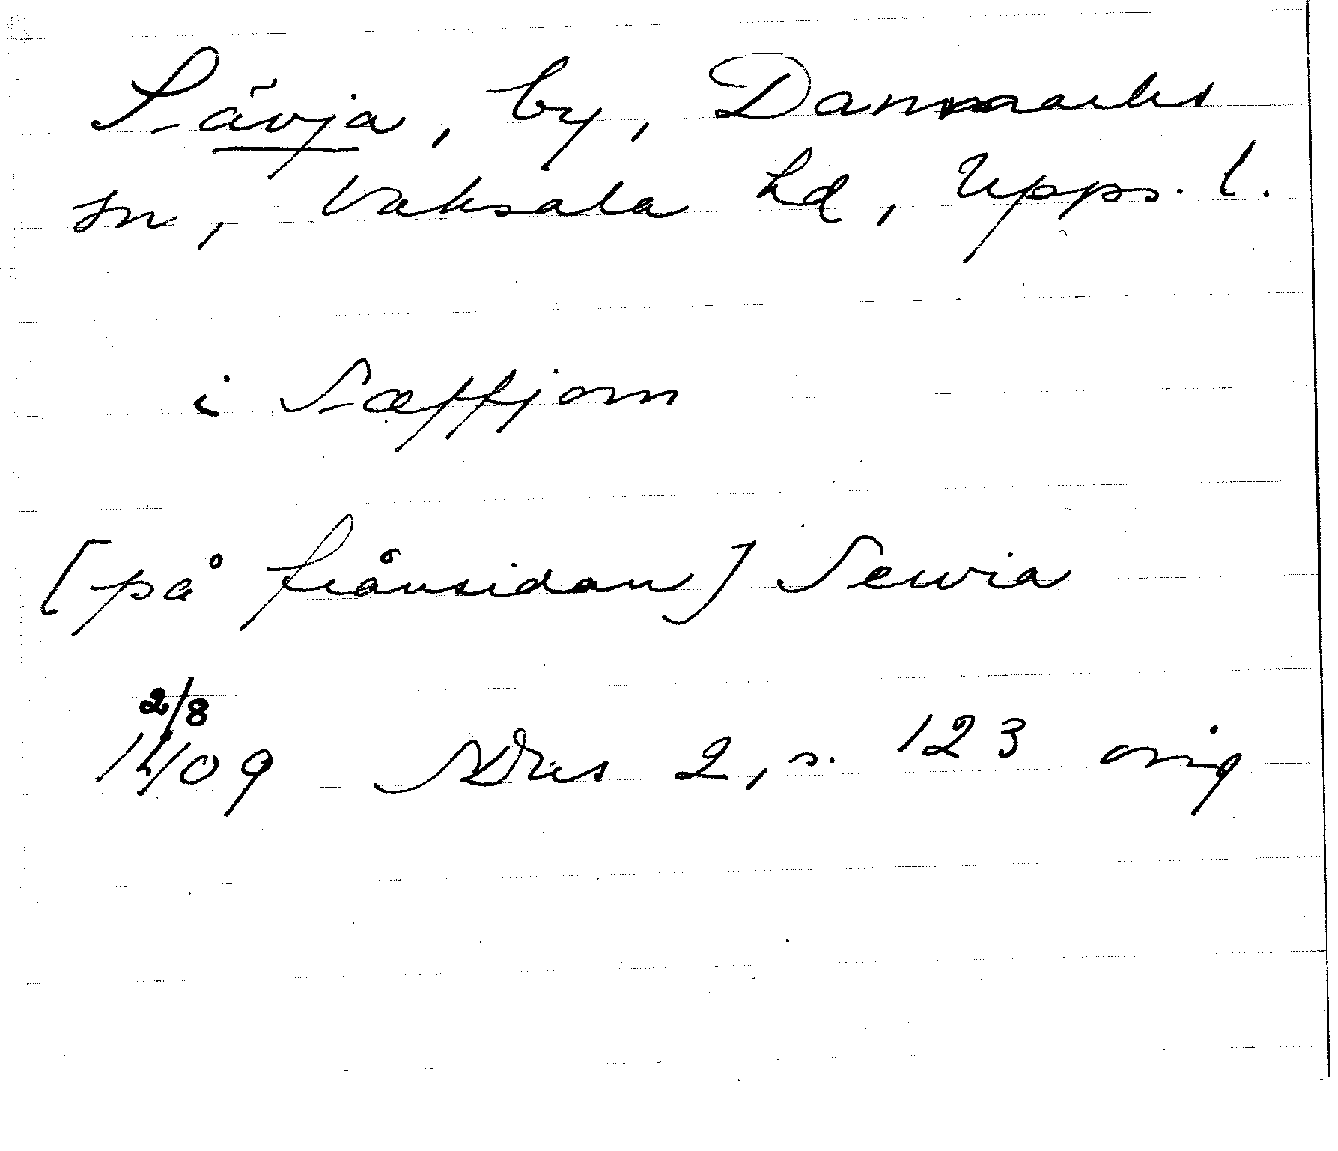 Sävja, by, Danmarks
sn, Vaksala hd, Upps. l.
i Sæffjom
[på frånsidan] Sewia
2/8
1409 SDns 2, s. 123 orig